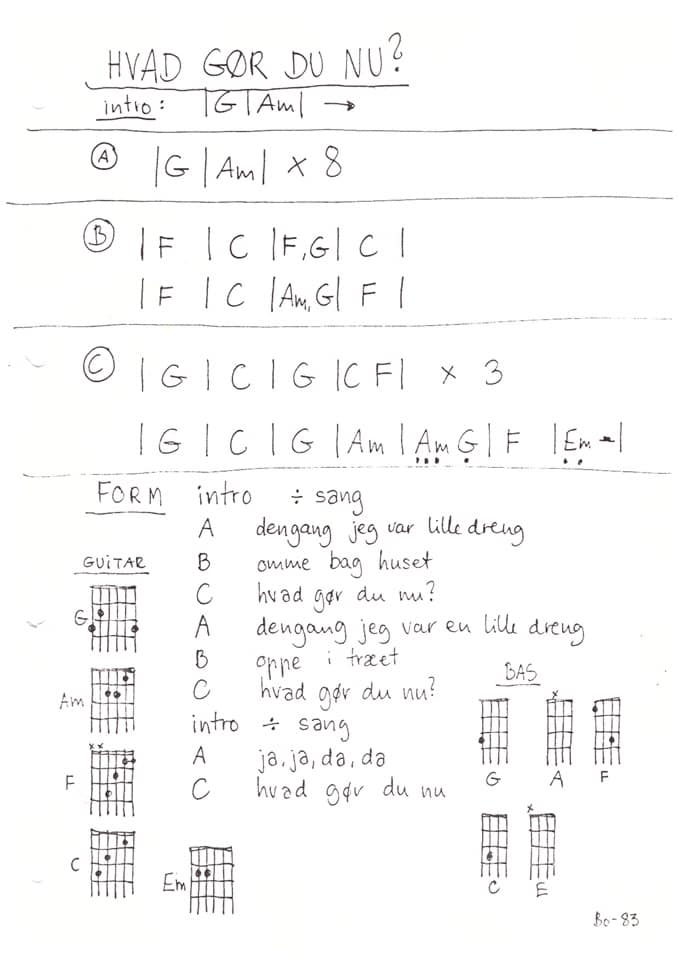 HVAD GØR DU NU?
intro: |G|Am| →
Ⓐ |G|Am| × 8
Ⓑ |F |C |F,G| C |
|F |C |Am,G| F |
Ⓒ |G|C|G|C F| × 3
|G|C|G|Am|Am G|F |Em -|
FORM intro ÷ sang
A dengang jeg var lille dreng
B omme bag huset
C hvad gør du nu?
A dengang jeg var en lille dreng
B oppe i træet
C hvad gør du nu?
intro ÷ sang
A ja, ja, da, da
C hvad gør du nu
GUITAR
G
Am
x x
F
C
Em
BAS
x
G A F
x
C E
Bo-83